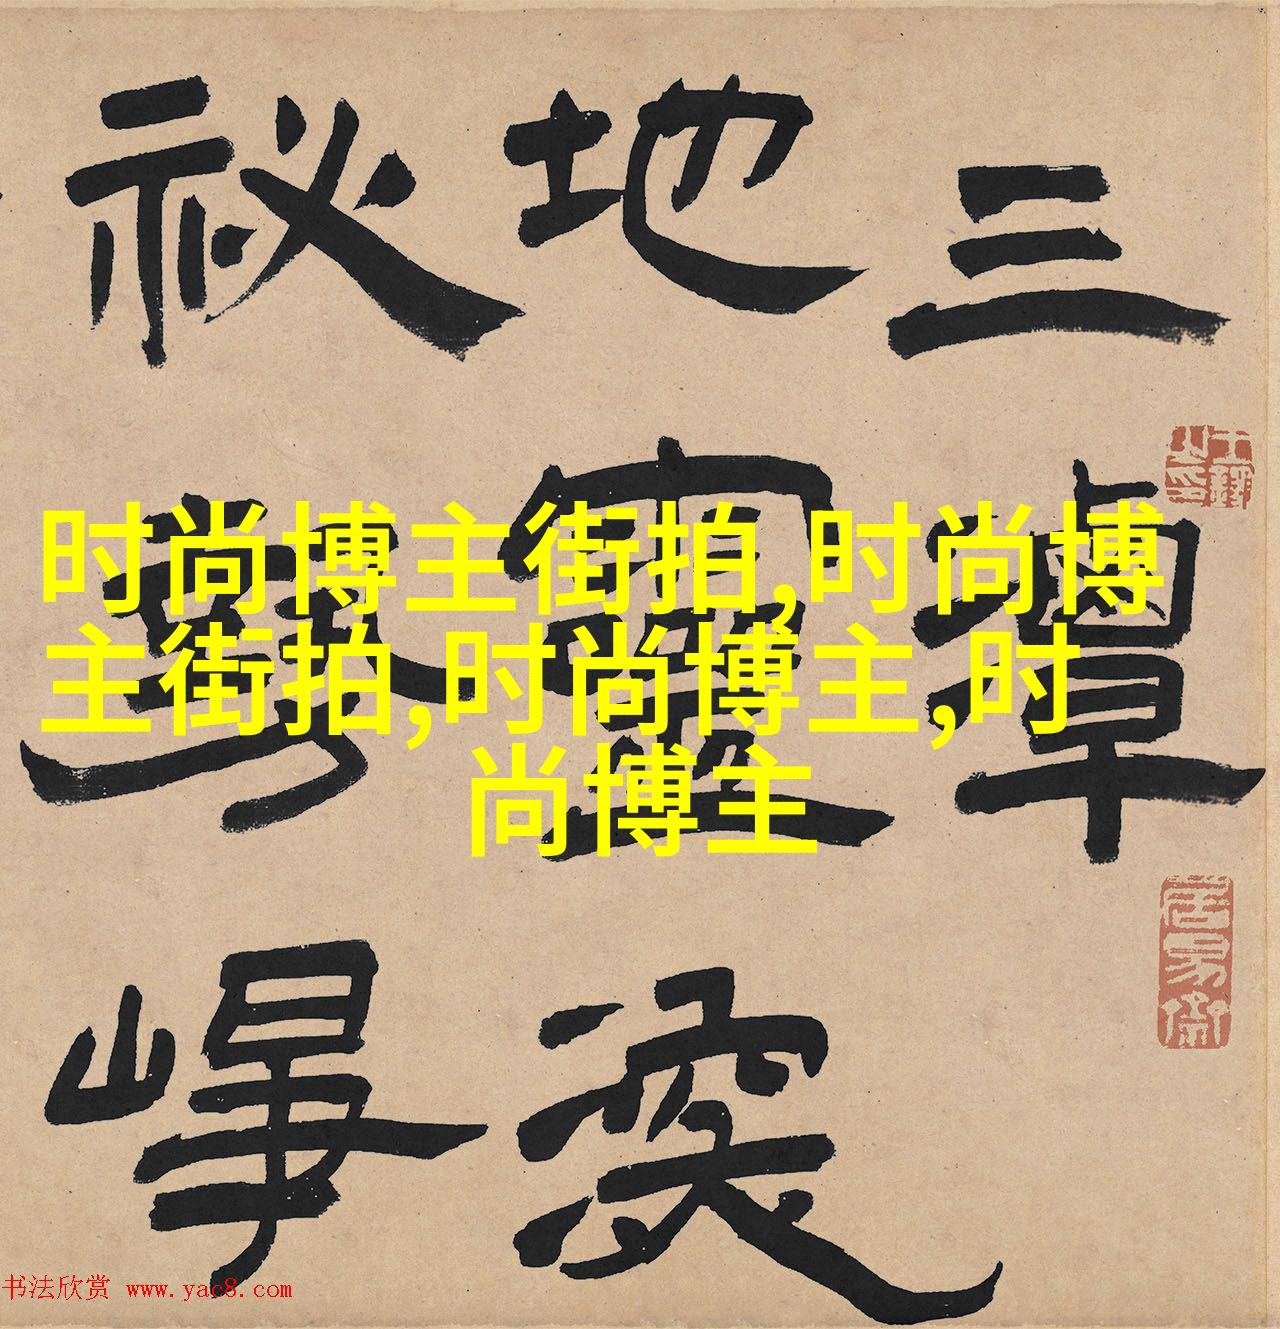 三潭
地靈爰
祕
时尚博主街拍,时尚博
主街拍,时尚博主,时
尚博主
书法欣赏 www.yac8.com